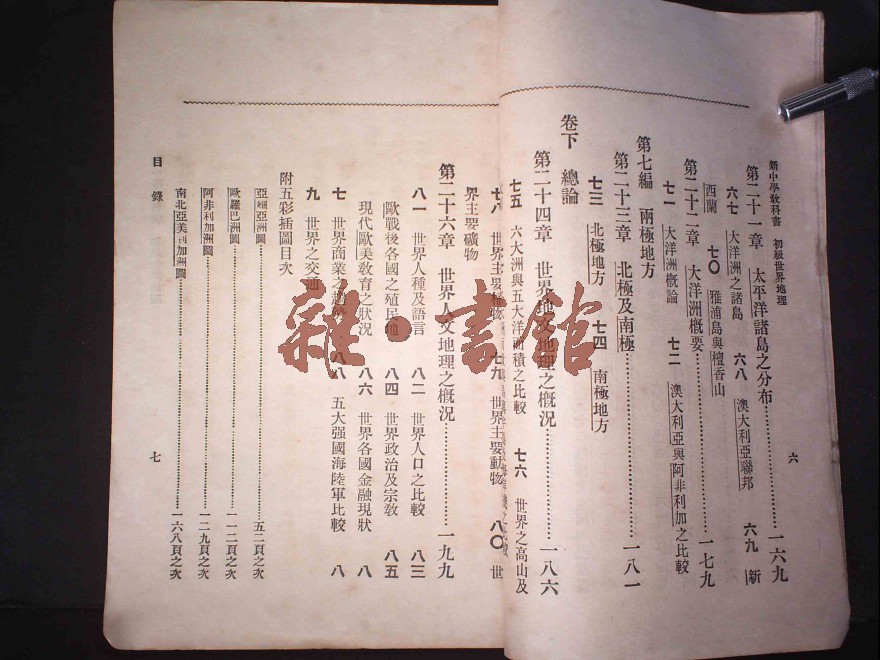 新中學敎科書　初級世界地理
六
第二十一章　太平洋諸島之分布…………一六九
六七　大洋洲之諸島　六八　澳大利亞聯邦　六九　新
西蘭　七〇　雅浦島與檀香山
第二十二章　大洋洲概要…………一七九
七一　大洋洲概論　七二　澳大利亞與阿非利加之比較
第七編　兩極地方
第二十三章　北極及南極…………一八一
七三　北極地方　七四　南極地方
卷下　總論
第二十四章　世界地文地理之概況…………一八六
七五　六大洲與五大洋面積之比較　七六　世界之高山及
七八　世界主要植物　七九　世界主要動物　八〇　世
界主要礦物
第二十六章　世界人文地理之概況…………一九九
八一　世界人種及語言　八二　世界人口之比較　八三
歐戰後各國之殖民地　八四　世界政治及宗敎　八五
現代歐美敎育之狀況　八六　世界各國金融現狀　八
七　世界商業之趨勢　八八　五大强國海陸軍比較　八
九　世界之交通
附五彩插圖目次
亞細亞洲圖…………五二頁之次
歐羅巴洲圖…………一一二頁之次
阿非利加洲圖…………一二九頁之次
南北亞美利加洲圖…………一六八頁之次
目錄
七
雜·書館